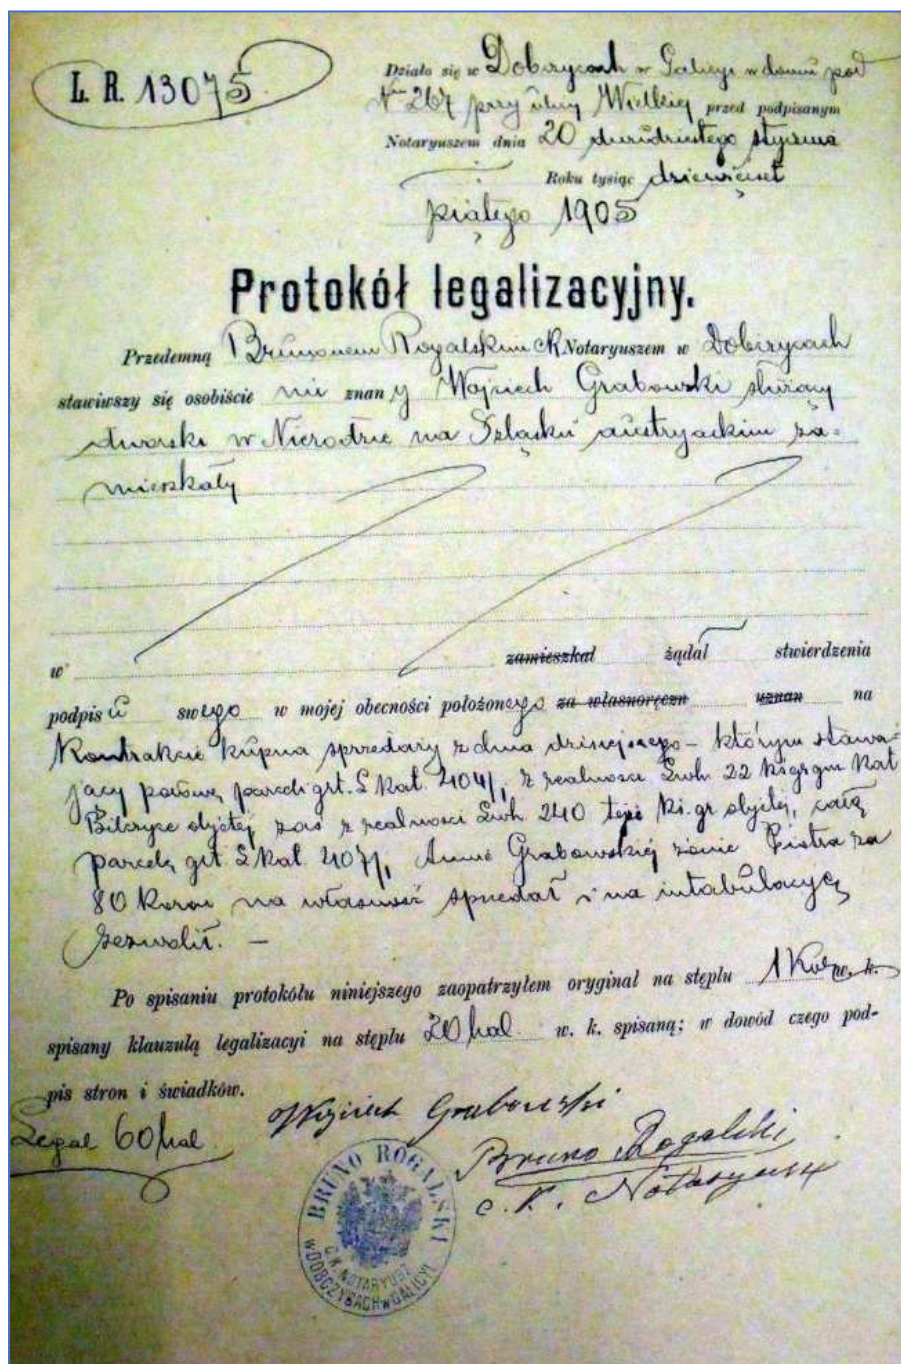 L. R. 13075
Działo się w Dobczycach w Galicyi w domu pod
Nrem 267 przy ulicy Wielkiej przed podpisanym
Notaryuszem dnia 20 dwudziestego stycznia
Roku tysiąc dziewięćset
piątego 1905
Protokół legalizacyjny.
Przedemną Brunonem Rogalskim CK Notaryuszem w Dobczycach
stawiwszy się osobiście mi znany Wojciech Grabowski służący
dworski w Nierodzie na Szląsku austryackim za-
mieszkały
w zamieszkał żądał stwierdzenia
podpisu swego w mojej obecności położonego za własnoręczn uznan na
Kontrakcie kupna sprzedaży z dnia dzisiejszego – którym stawa-
jący połowę parceli grt. L kat. z realności Lwh 22 ks gr gm kat
Bilczyce objętej zaś z realności Lwh 240 tejże ks. gr objętej, całą
parcelę grt L kat Annie Grabowskiej żonie Piotra za
80 Koron na własność sprzedał i na intabulacyę
zezwolił. –
Po spisaniu protokółu niniejszego zaopatrzyłem oryginał na stęplu 1 Kor w. k.
spisany klauzulą legalizacyi na stęplu 20 hal w. k. spisaną; w dowód czego pod-
pis stron i świadków.
Legal 60 hal
Wojciech Grabowski
Bruno Rogalski
c. k. Notaryusz
BRUNO ROGALSKI
C. K. NOTARYUSZ
W DOBCZYCACH W GALICYI